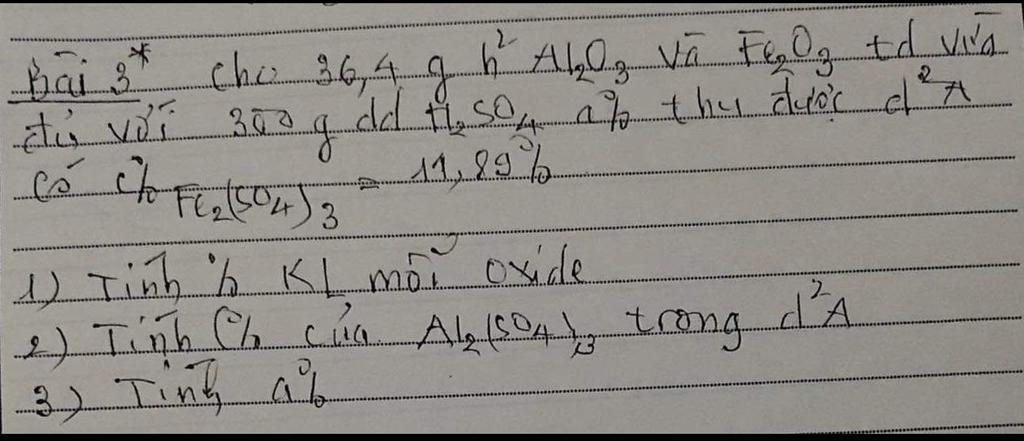 Bài 3* Cho 36,4 g h² Al₂O₃ và Fe₂O₃ td vừa
đủ với 300 g dd H₂SO₄ a% thu được d² A
có C% Fe₂(SO₄)₃ = 11,89%
1) Tính % KL mỗi oxide
2) Tính C% của Al₂(SO₄)₃ trong d² A
3) Tính a%